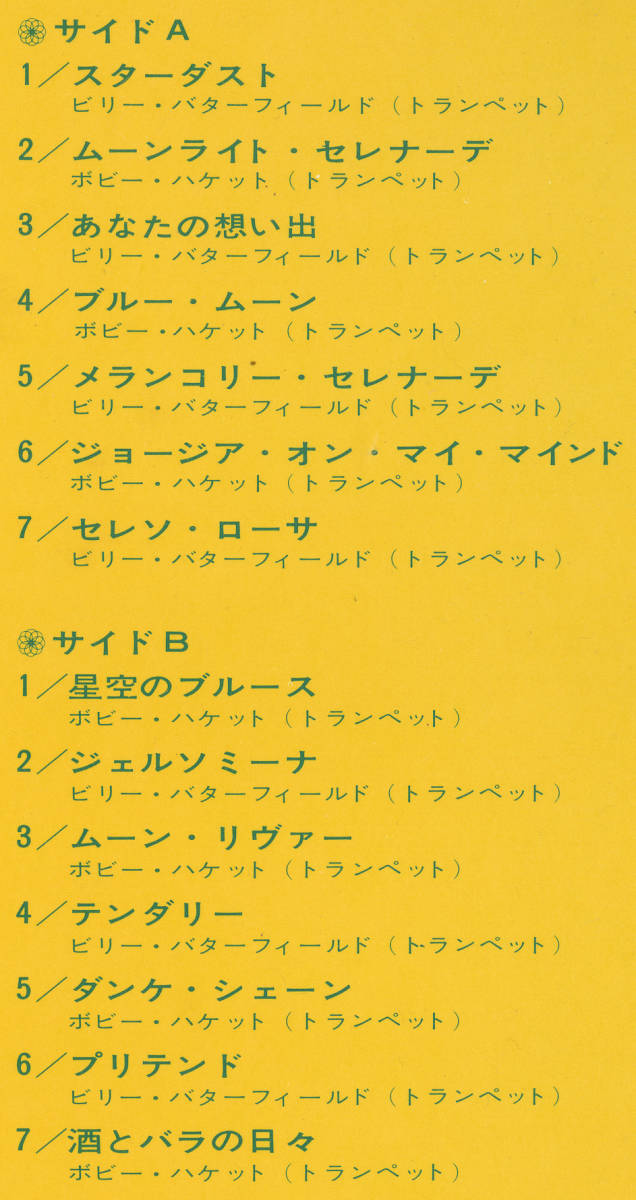 サイドA
1／スターダスト
ビリー・バターフィールド（トランペット）
2／ムーンライト・セレナーデ
ボビー・ハケット（トランペット）
3／あなたの想い出
ビリー・バターフィールド（トランペット）
4／ブルー・ムーン
ボビー・ハケット（トランペット）
5／メランコリー・セレナーデ
ビリー・バターフィールド（トランペット）
6／ジョージア・オン・マイ・マインド
ボビー・ハケット（トランペット）
7／セレソ・ローサ
ビリー・バターフィールド（トランペット）
サイドB
1／星空のブルース
ボビー・ハケット（トランペット）
2／ジェルソミーナ
ビリー・バターフィールド（トランペット）
3／ムーン・リヴァー
ボビー・ハケット（トランペット）
4／テンダリー
ビリー・バターフィールド（トランペット）
5／ダンケ・シェーン
ボビー・ハケット（トランペット）
6／プリテンド
ビリー・バターフィールド（トランペット）
7／酒とバラの日々
ボビー・ハケット（トランペット）